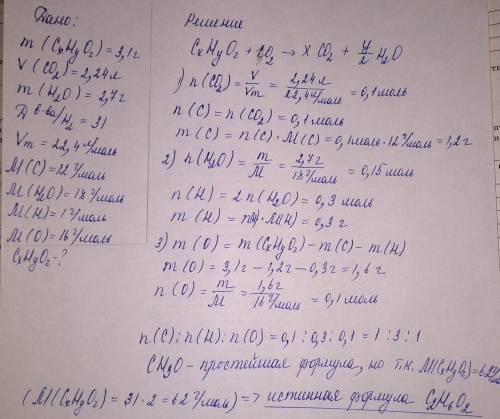 Дано:
m (CxHyOz) = 3,1 г
V (CO₂) = 2,24 л
m (H₂O) = 2,7 г
Д в-ва/H₂ = 31
Vm = 22,4 л/моль
M(C) = 12 г/моль
M(H₂O) = 18 г/моль
M(H) = 1 г/моль
M(O) = 16 г/моль
CxHyOz - ?
Решение
CxHyOz + O₂ → X CO₂ + y/2 H₂O
1) n(CO₂) = V/Vm = 2,24л/22,4 л/моль = 0,1 моль
n(C) = n(CO₂) = 0,1 моль
m(C) = n(C) · M(C) = 0,1моль · 12 г/моль = 1,2 г
2) n(H₂O) = m/M = 2,7г/18 г/моль = 0,15 моль
n(H) = 2 n(H₂O) = 0,3 моль
m(H) = n(H) · M(H) = 0,3 г
3) m(O) = m(CxHyOz) - m(C) - m(H)
m(O) = 3,1г - 1,2г - 0,3г = 1,6 г
n(O) = m/M = 1,6г/16 г/моль = 0,1 моль
n(C) : n(H) : n(O) = 0,1 : 0,3 : 0,1 = 1 : 3 : 1
CH₃O - простейшая формула, но т.к. M(CxHyOz) = 62 г/моль
(M(CxHyOz) = 31 · 2 = 62 г/моль) => истинная формула C₂H₆O₂